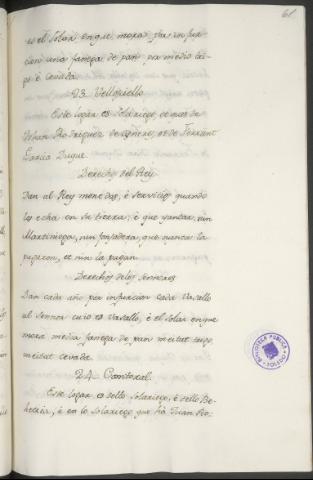 61
es el Solar en que mora, por infur-
cion una fanega de pan por medio tri-
go é cevada.
23. Vellosiello
Este logar es Solariego, et es de
Johan Rodriguez de Cisneros, et de Ferrant
Garcia Duque.
Derechos del Rey
Dan al Rey monedas, é servicios quando
los echa en su tierra; é que yantar, nin
Martiniega, nin fonsadera, que nunca la
pagaron, et nin la pagan.
Derechos de los Sennores
Dan cada año por infurcion cada vasallo
al Sennor cuio es Vasallo, é el Solar en que
mora media fanega de pan meitat trigo,
meitat cevada.
24. Cantoral.
Este logar es dello Solariego, é dello Be-
hetria, é en lo Solariego que há Juan Ro-
BIBLIOTECA PUBLICA
TOLEDO